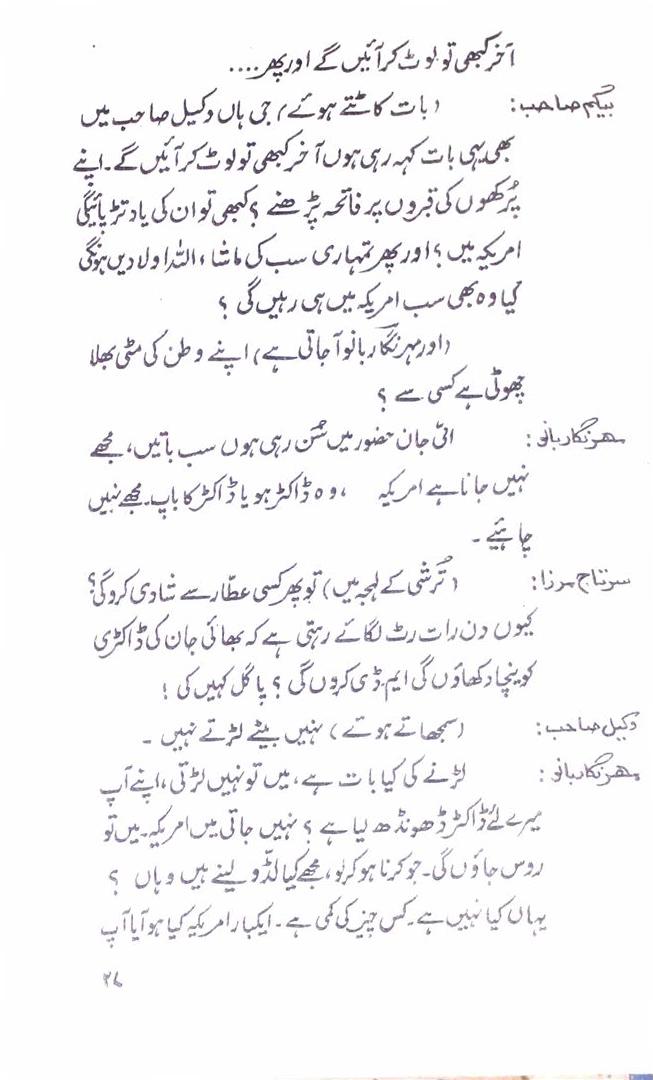 آخر کبھی تو لوٹ کر آئیں گے اور پھر....
بیگم صاحب: (بات کاٹتے ہوئے) جی ہاں وکیل صاحب میں
بھی یہی بات کہہ رہی ہوں آخر کبھی تو لوٹ کر آئیں گے۔ اپنے
پُرکھوں کی قبروں پر فاتحہ پڑھنے ؟ کبھی تو ان کی یاد تڑپائیگی
امریکہ میں ؟ اور پھر تمہاری سب کی ماشاء اللہ اولادیں ہونگی
کیا وہ بھی سب امریکہ میں ہی رہیں گی ؟
(اور مہر نگار بانو آ جاتی ہے) اپنے وطن کی مٹی بھلا
چھوٹی ہے کسی سے ؟
مہر نگار بانو: امّی جان حضور میں سُن رہی ہوں سب باتیں، مجھے
نہیں جانا ہے امریکہ ، وہ ڈاکٹر ہو یا ڈاکٹر کا باپ۔ مجھے نہیں
چاہیے۔
سرتاج مرزا: (تُرشی کے لہجہ میں) تو پھر کسی عطّار سے شادی کرو گی؟
کیوں دن رات رٹ لگائے رہتی ہے کہ بھائی جان کی ڈاکٹری
کو نیچا دکھاؤں گی ایم۔ڈی کروں گی ؟ پاگل کہیں کی !
وکیل صاحب: (سمجھاتے ہوتے) نہیں بیٹے لڑتے نہیں ۔
مہر نگار بانو: لڑنے کی کیا بات ہے، میں تو نہیں لڑتی، اپنے آپ
میرے لئے ڈاکٹر ڈھونڈھ لیا ہے ؟ نہیں جاتی میں امریکہ۔ میں تو
روس جاؤں گی۔ جو کرنا ہو کرلو، مجھے کیا لڈّو لینے ہیں وہاں ؟
یہاں کیا نہیں ہے۔ کس چیز کی کمی ہے۔ ایکبار امریکہ کیا ہو آیا آپ